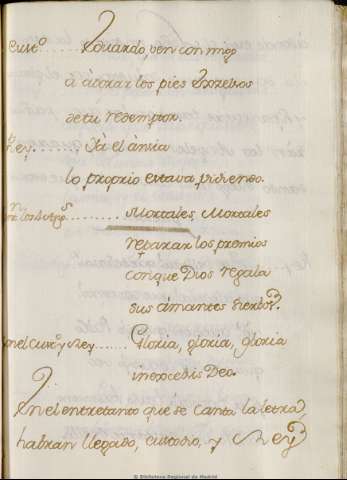 Custo. ....... Eduardo, ven con migo
à adorar los pies
de tù redemptor.
Rey. ....... Yà el ànsia
lo proprio estava pidiendo.
........ Mortales, Mortales
reparar los premios
con que Dios regala
sus àmantes siervos.
el Custo. y Rey ...... Gloria, gloria, gloria
in excelsis Deo.
En el entretanto que se canta la letra,
habran llegado, custodio, y Rey
© Biblioteca Regional de Madrid